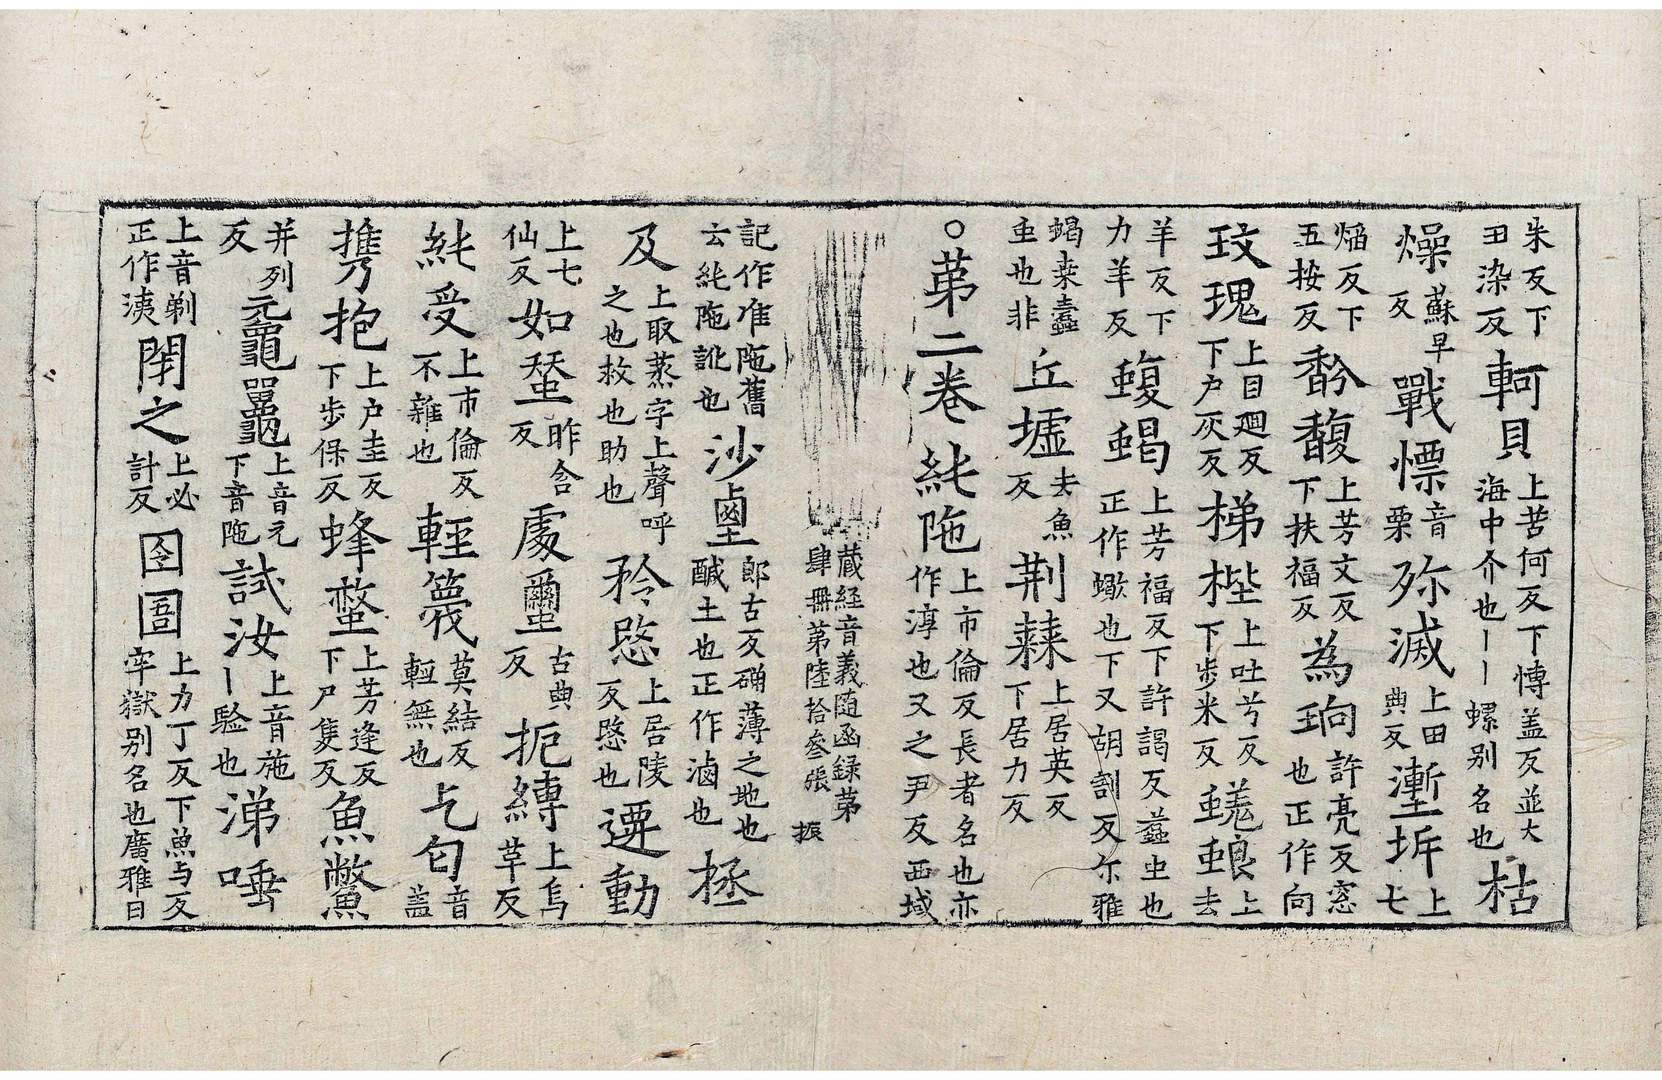 朱反下田染反軻貝上苦何反下博盖反並大海中介也丨丨螺别名也枯
燥蘇早反戰慄音栗殄滅上田典反壍坼上七
焰反下五按反馚馥上芳文反下扶福反為珦許亮反窓也正作向
玫瑰上目廻反下户灰反梯梐上吐兮反下步米反蜣蜋上去
羊反下力羊反蝮蝎上芳福反下許謁反螫虫也正作蠍也下又胡割反尒雅
蝎桒蠹虫也非丘墟去魚反荆棘上居英反下居力反
○苐二卷純陁上市倫反長者名也亦作淳也又之尹反西域
藏経音義随函録苐肆冊苐陸拾叁張 振
記作准陁舊云純陁訛也沙鹵郎古反确薄之地也鹹土也正作滷也拯
及上取蒸字上聲呼之也救也助也矜愍上居陵反愍也遝動
上七仙反如蝅昨含反處壐古典反扼縛上烏草反
純受上市倫反不雜也輕篾莫結反輕無也乞匄音盖
擕抱上户圭反下步保反蜂螫上芳逢反下尸隻反魚鱉
并列反黿鼉上音元下音陁試汝上音施丨驗也涕唾
上音剃正作洟閇之上必計反囹圄上力丁反下魚与反牢獄别名也廣雅曰